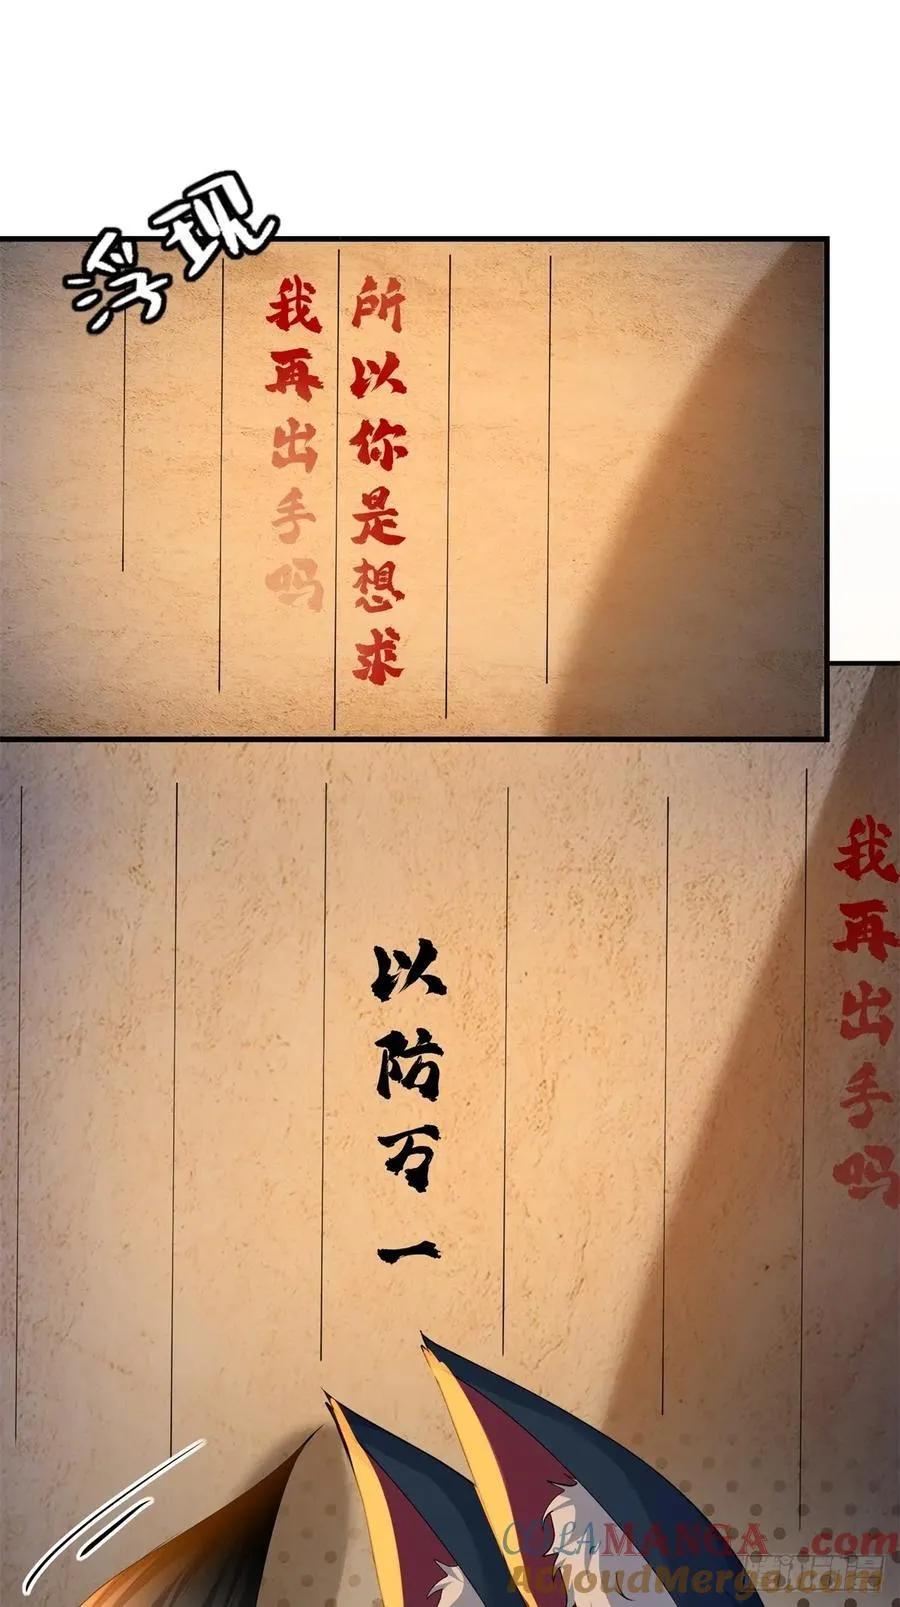 浮现
所以你是想求
我再出手吗
我再出手吗
以防万一
COLAMANGA.com
AcloudMerge.com